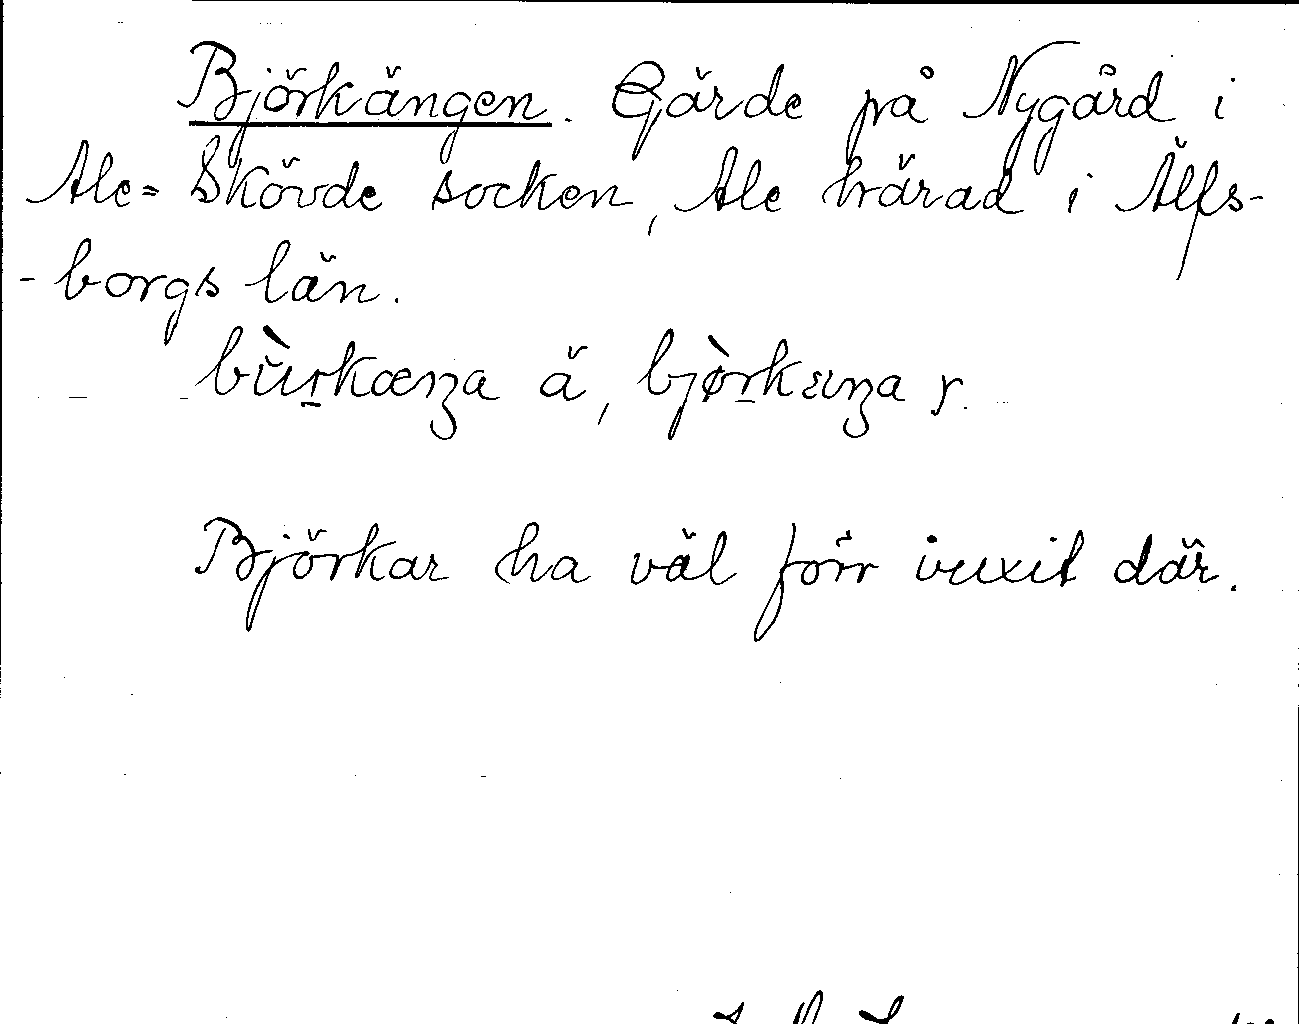 Björkängen. Gärde på Nygård i
Ale= Skövde socken, Ale härad i Älfs-
-borgs län.
ä, y.
Björkar ha väl förr vuxit där.